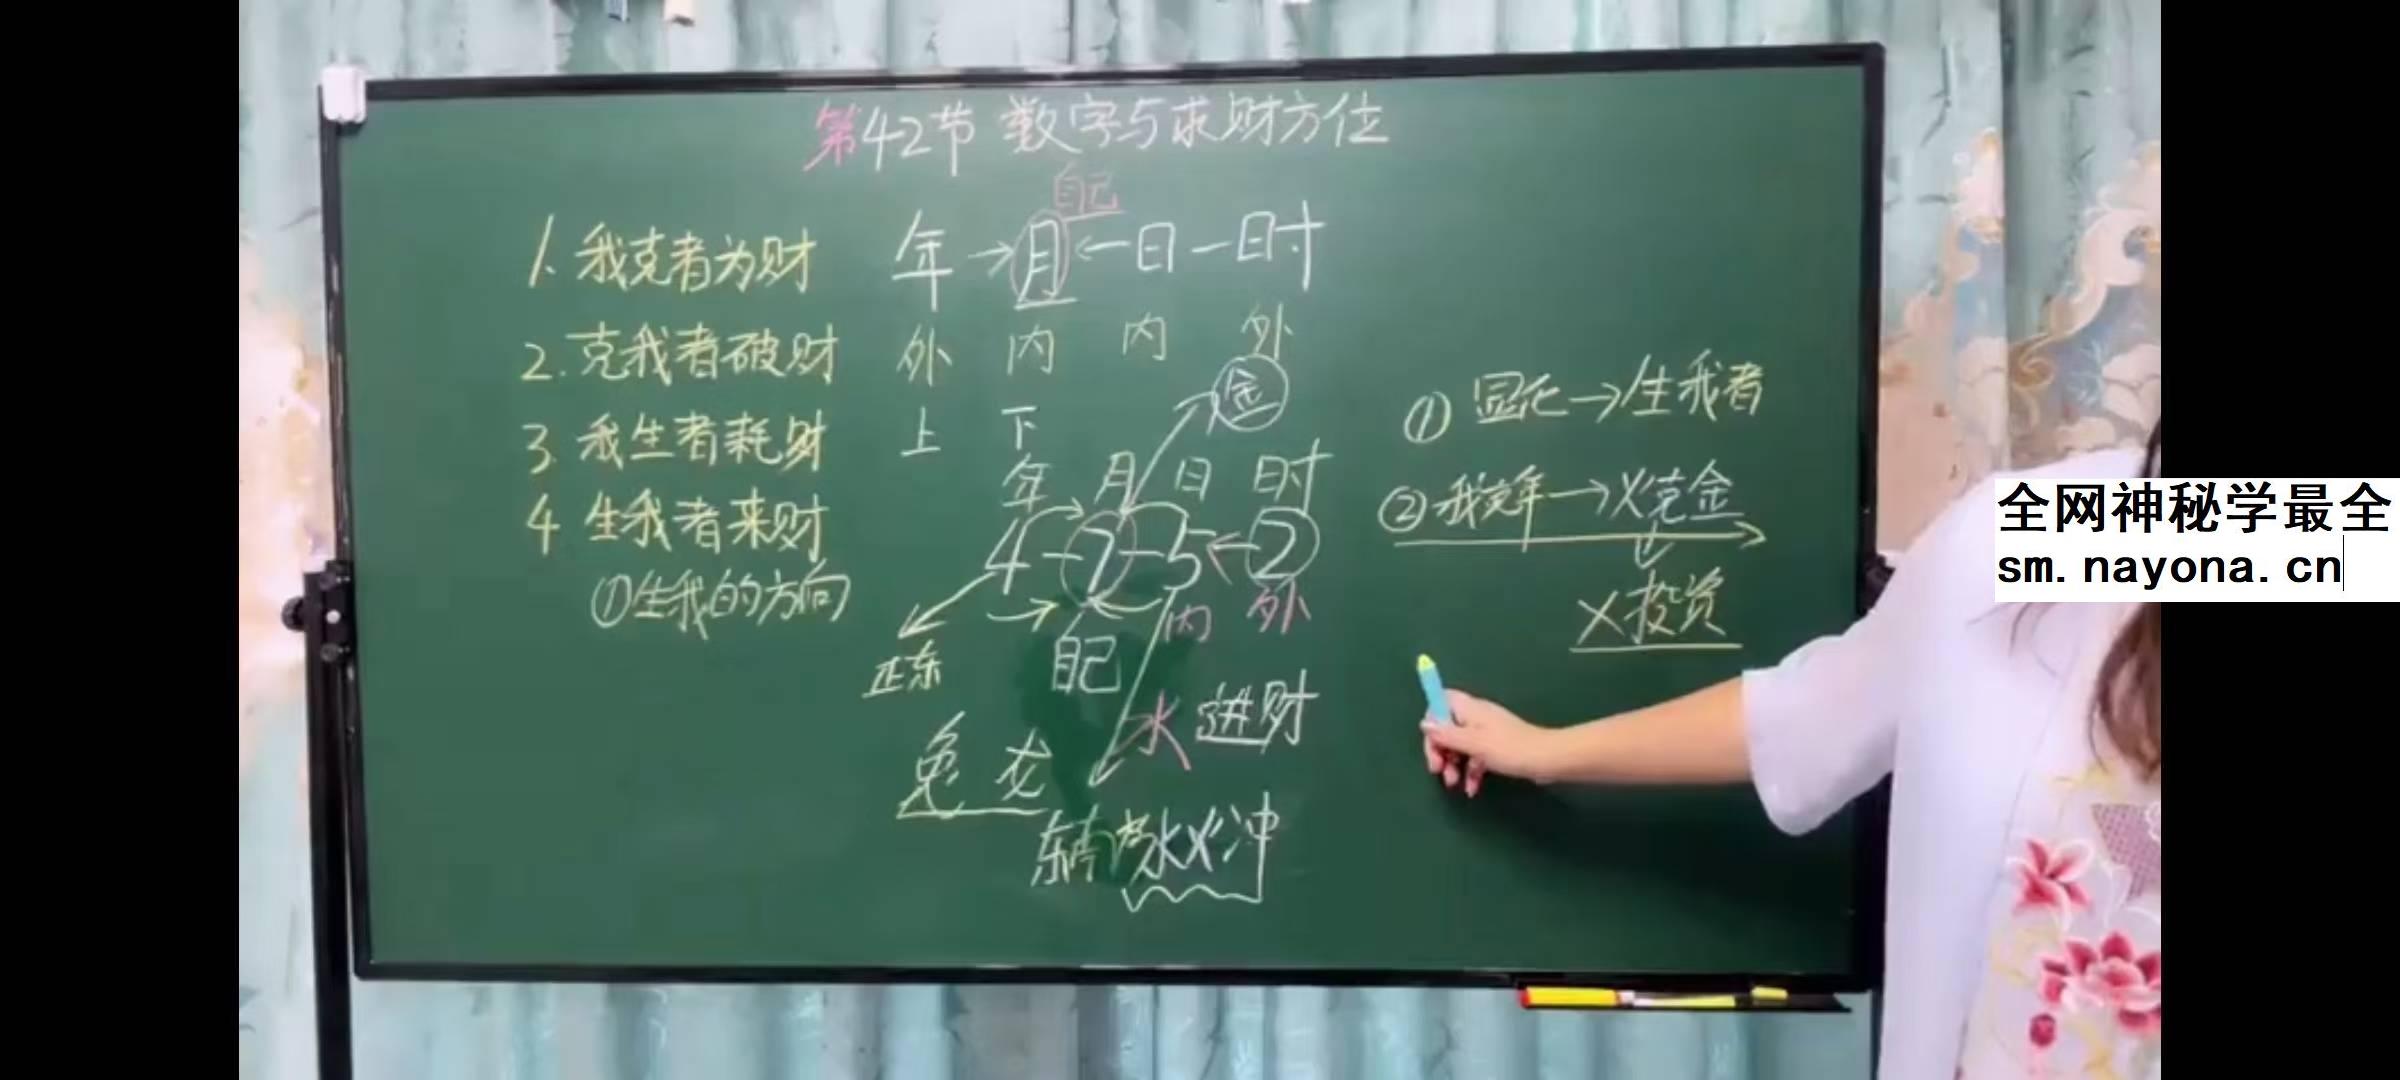 第42节 数字与求财方位
自己
1. 我克者为财
年→月←日-时
2. 克我者破财
外 内 内 外
3. 我生者耗财
上 下
金
4 生我者来财
①生我的方向
年 月 日 时
4-7-5←2
自己
内 外
正东
水 进财
兔 龙
东南 水火冲
①显化→生我者
②我克年→火克金
火投资
全网神秘学最全
sm.nayona.cn